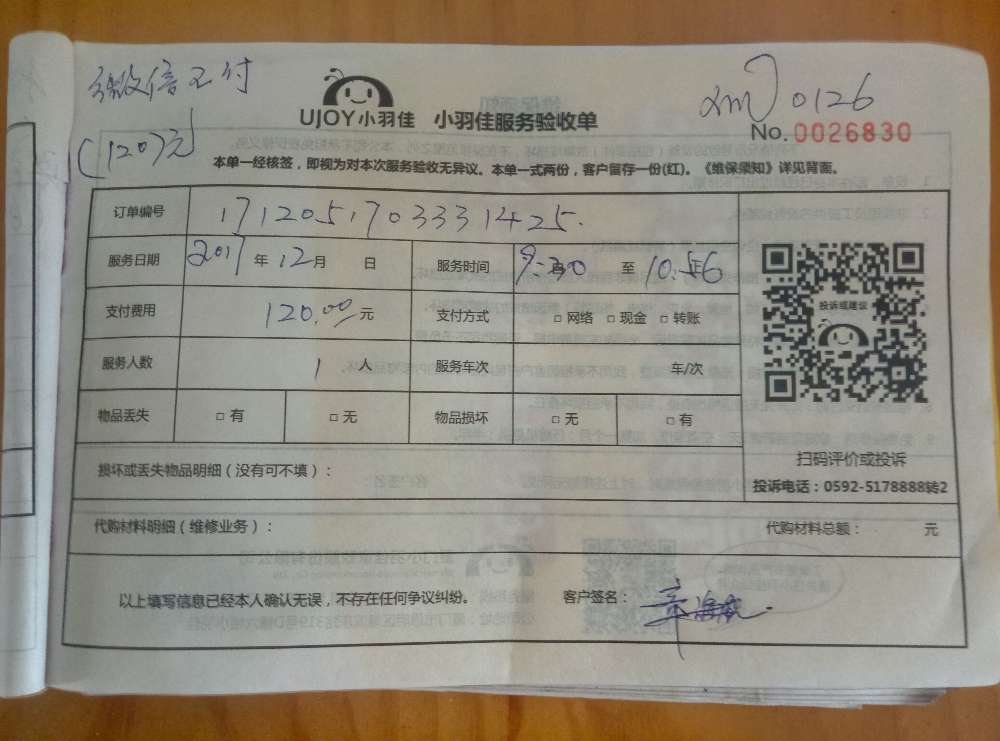 微信支付
(120元)
UJOY小羽佳 小羽佳服务验收单
xm 0126
No. 0026830
本单一经核签，即视为对本次服务验收无异议。本单一式两份，客户留存一份(红)。《维保须知》详见背面。
订单编号 1712051703331425.
服务日期 2017年12月 日 服务时间 9:30 至 10:56
支付费用 120.00元 支付方式 □网络 □现金 □转账
服务人数 1 人 服务车次 车/次
物品丢失 □有 □无 物品损坏 □无 □有
损坏或丢失物品明细（没有可不填）：
投诉或建议
扫码评价或投诉
投诉电话：0592-5178888转2
代购材料明细（维修业务）： 代购材料总额： 元
以上填写信息已经本人确认无误，不存在任何争议纠纷。 客户签名：